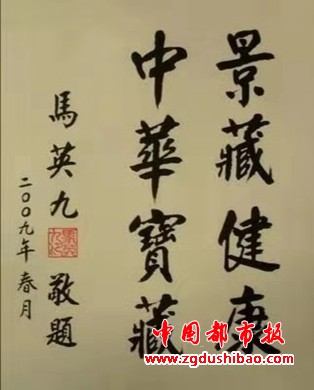 景藏健康
中華寶藏
馬英九
敬題
二〇〇九年 春月
中国都市报
www.zgdushibao.com